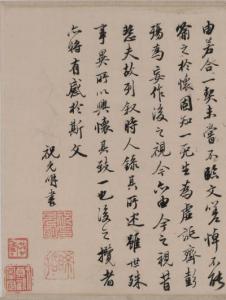 由若合一契未嘗不臨文嗟悼不能
喻之於懷固知一死生為虛誕齊彭
殤為妄作後之視今亦由今之視昔
悲夫故列敘時人錄其所述雖世殊
事異所以興懷其致一也後之攬者
亦將有感於斯文
祝允明書